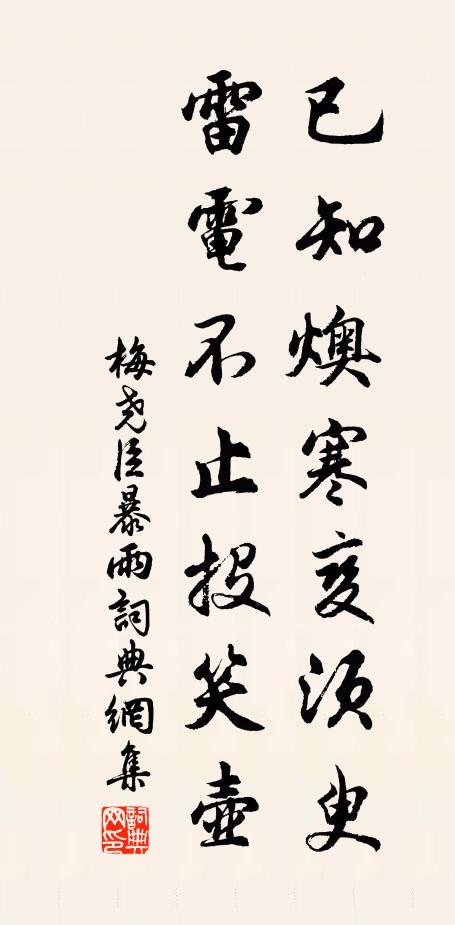 已知燠寒变须臾
雷電不止投笑壺
梅尧臣暴雨詞典網集
詞典网印